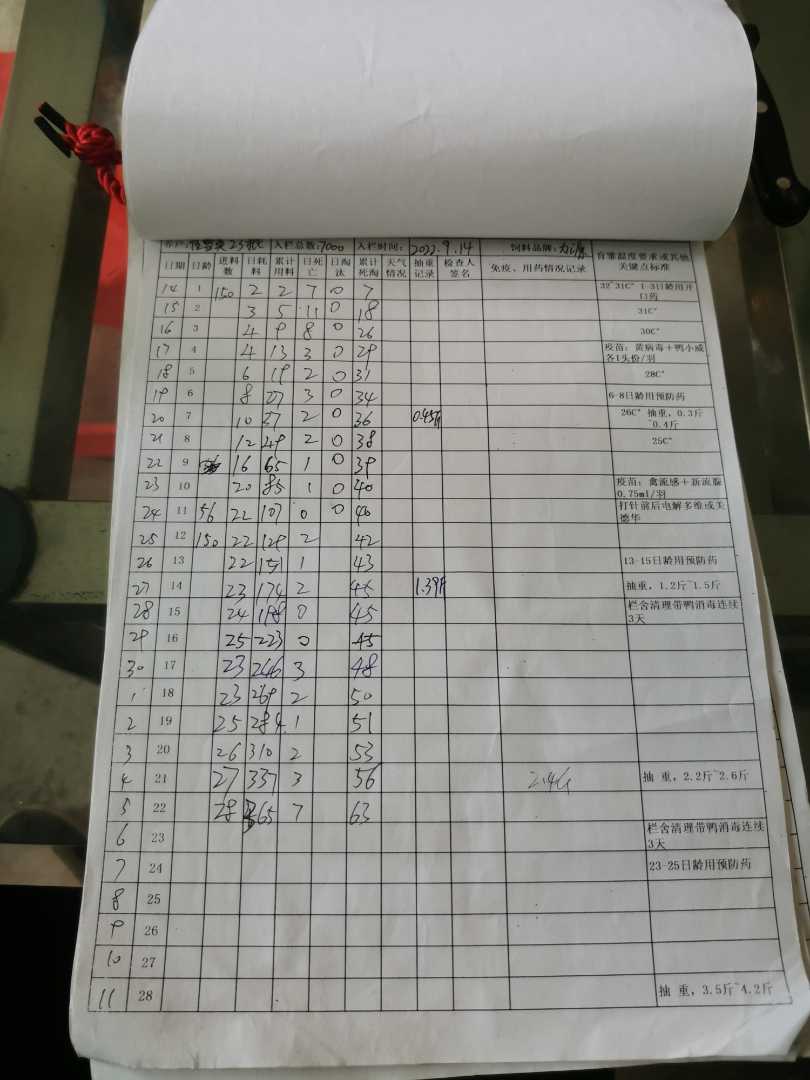 养户: 23批 入栏总数:7000 入栏时间: 2022.9.14 饲料品牌:
日期 日龄 进料数 日耗料 累计用料 日死亡 日淘汰 累计死淘 天气情况 抽重记录 检查人签名 免疫、用药情况记录 育雏温度要求或其他关键点标准
14 1 150 2 2 7 0 7 32~31C° 1-3日龄用开口药
15 2 3 5 11 0 18 31C°
16 3 4 9 8 0 26 30C°
17 4 4 13 3 0 29 疫苗: 黄病毒+鸭小威各1头份/羽
18 5 6 19 2 0 31 28C°
19 6 8 27 3 0 34 6-8日龄用预防药
20 7 10 37 2 0 36 0.45斤 26C° 抽重, 0.3斤~0.4斤
21 8 12 49 2 0 38 25C°
22 9 16 65 1 0 39
23 10 20 85 1 0 40 疫苗: 禽流感+新流腺0.75ml/羽
24 11 56 22 107 0 0 40 打针前后电解多维或美德华
25 12 150 22 129 2 42
26 13 22 151 1 43 13-15日龄用预防药
27 14 23 174 2 45 1.39斤 抽重, 1.2斤~1.5斤
28 15 24 198 0 45 栏舍清理带鸭消毒连续3天
29 16 25 223 0 45
30 17 23 246 3 48
1 18 23 269 2 50
2 19 25 284 1 51
3 20 26 310 2 53
4 21 27 337 3 56 2.4斤 抽 重, 2.2斤~2.6斤
5 22 28 365 7 63
6 23 栏舍清理带鸭消毒连续3天
7 24 23-25日龄用预防药
8 25
9 26
10 27
11 28 抽 重, 3.5斤~4.2斤